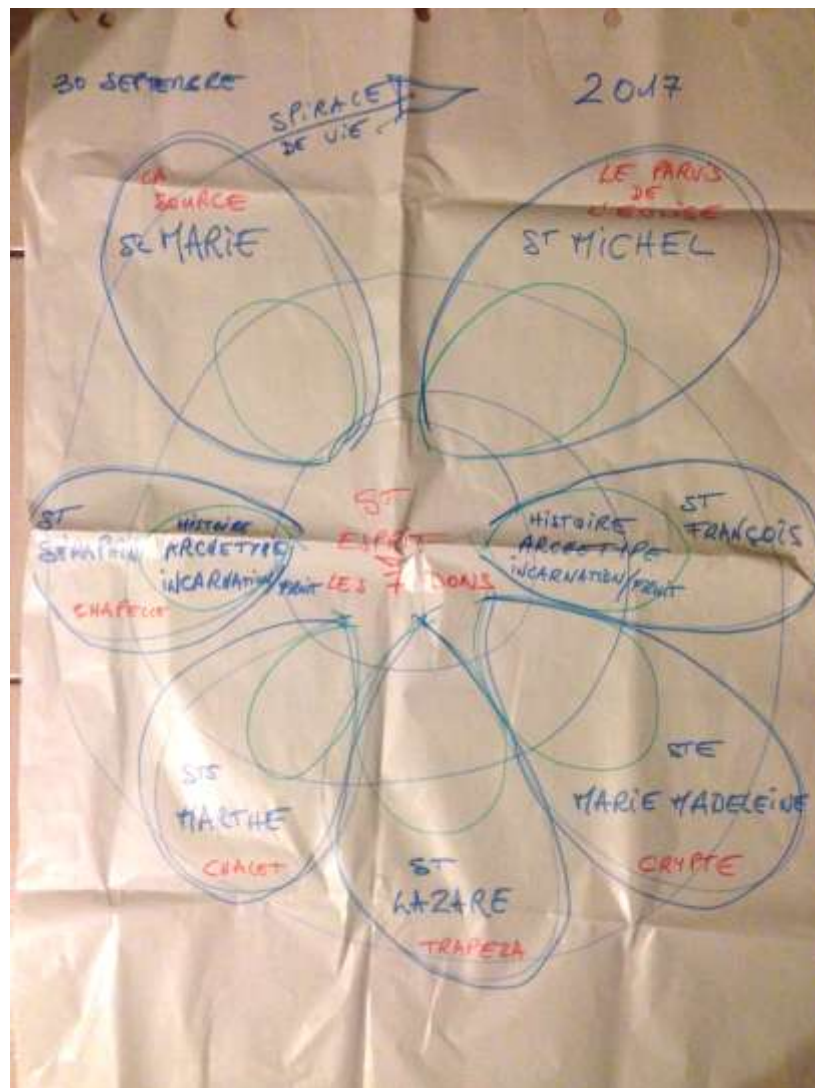 30 SEPTEMBRE
2017
SPIRALE
DE VIE
LA
SOURCE
MARIE
LE PARVIS
DE
L'ÉGLISE
ST MICHEL
ST
SERAPHIN
CHAPELLE
HISTOIRE
ARCHETYPE
INCARNATION/FRUIT
ST
ESPRIT
LES 7 DONS
HISTOIRE
ARCHETYPE
INCARNATION/FRUIT
ST
FRANÇOIS
STE
MARTHE
CHALET
ST
LAZARE
TRAPEZA
STE
MARIE MADELEINE
CRYPTE